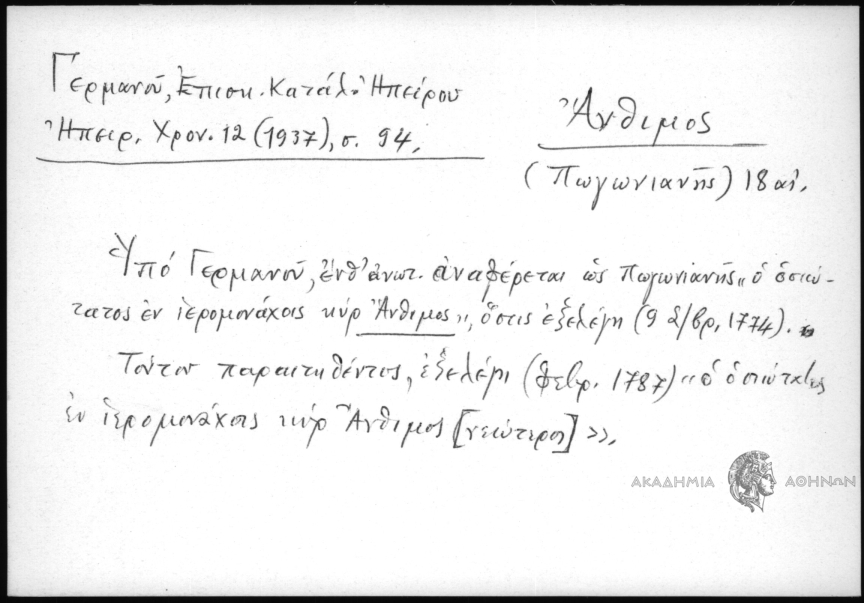 Γερμανοῦ, Ἐπισκ. Κατάλ. Ἠπείρου
Ἠπειρ. Χρον. 12 (1937), σ. 94.
Ἄνθιμος
(Πωγωνιανῆς) 18 αἰ.
Ὑπό Γερμανοῦ, ἔνθ' ἀνωτ. ἀναφέρεται ὡς Πωγωνιανῆς «ὁ ὁσιώ-
τατος ἐν ἱερομονάχοις κύρ Ἄνθιμος», ὅστις ἐξελέγη (9 1774).
Τούτου παραιτηθέντος, ἐξελέγη (φεβρ. 1787) «ὁ ὁσιώτατος
ἐν ἱερομονάχοις κύρ Ἄνθιμος [νεώτερος]».
ΑΚΑΔΗΜΙΑ ΑΘΗΝΩΝ